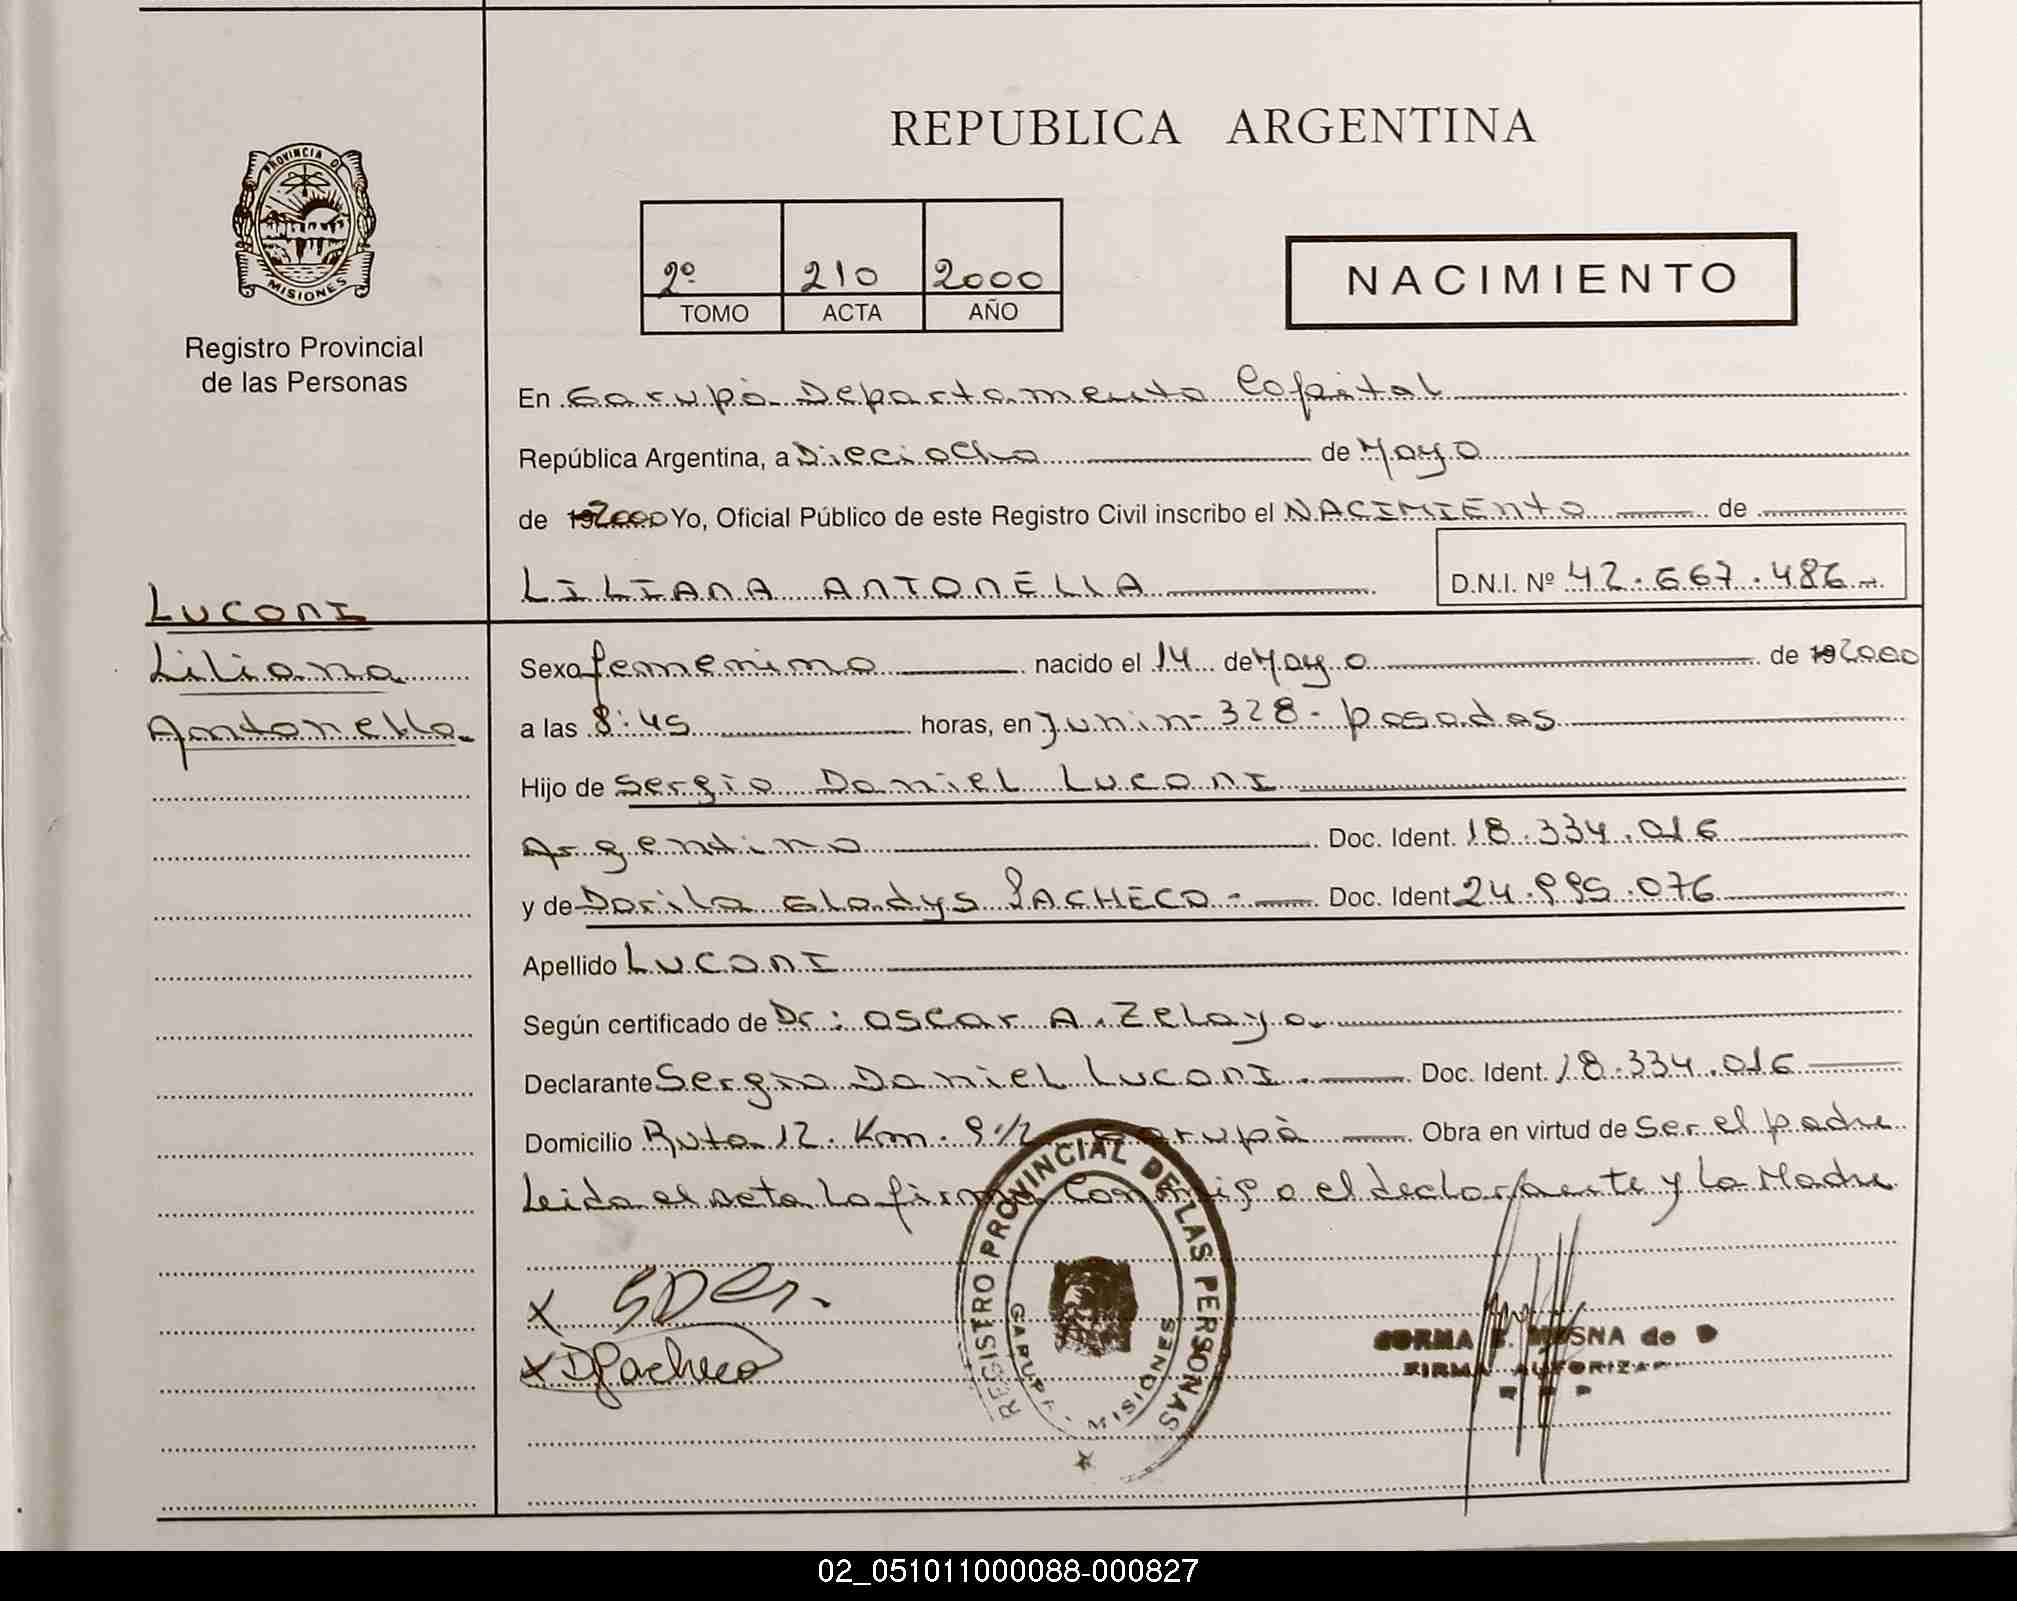 REPUBLICA ARGENTINA
PROVINCIA DE
MISIONES
Registro Provincial
de las Personas
2º 210 2000
TOMO ACTA AÑO
NACIMIENTO
En Garupá Departamento Capital
República Argentina, a Dieciocho de Mayo
de 192000 Yo, Oficial Público de este Registro Civil inscribo el NACIMIENTO de
LILIANA ANTONELLA D.N.I. Nº 42.667.486
LUCONI
Liliana
Antonella
Sexo femenino nacido el 14 de Mayo de 192000
a las 8:45 horas, en Junin-328-posadas
Hijo de Sergio Daniel LUCONI
Argentino Doc. Ident. 18.334.016
y de Dorila Gladys PACHECO Doc. Ident. 24.995.076
Apellido LUCONI
Según certificado de Dr: Oscar A. Zelaya
Declarante Sergio Daniel LUCONI Doc. Ident. 18.334.016
Domicilio Ruta 12. Km. 9 1/2 Garupá Obra en virtud de Ser el padre
Leida el acta la firma Conmigo el declarante y la Madre
REGISTRO PROVINCIAL DE LAS PERSONAS
GARUPA - MISIONES
X
X DGPacheco
de D
FIRMA AUTORIZAD
02_051011000088-000827